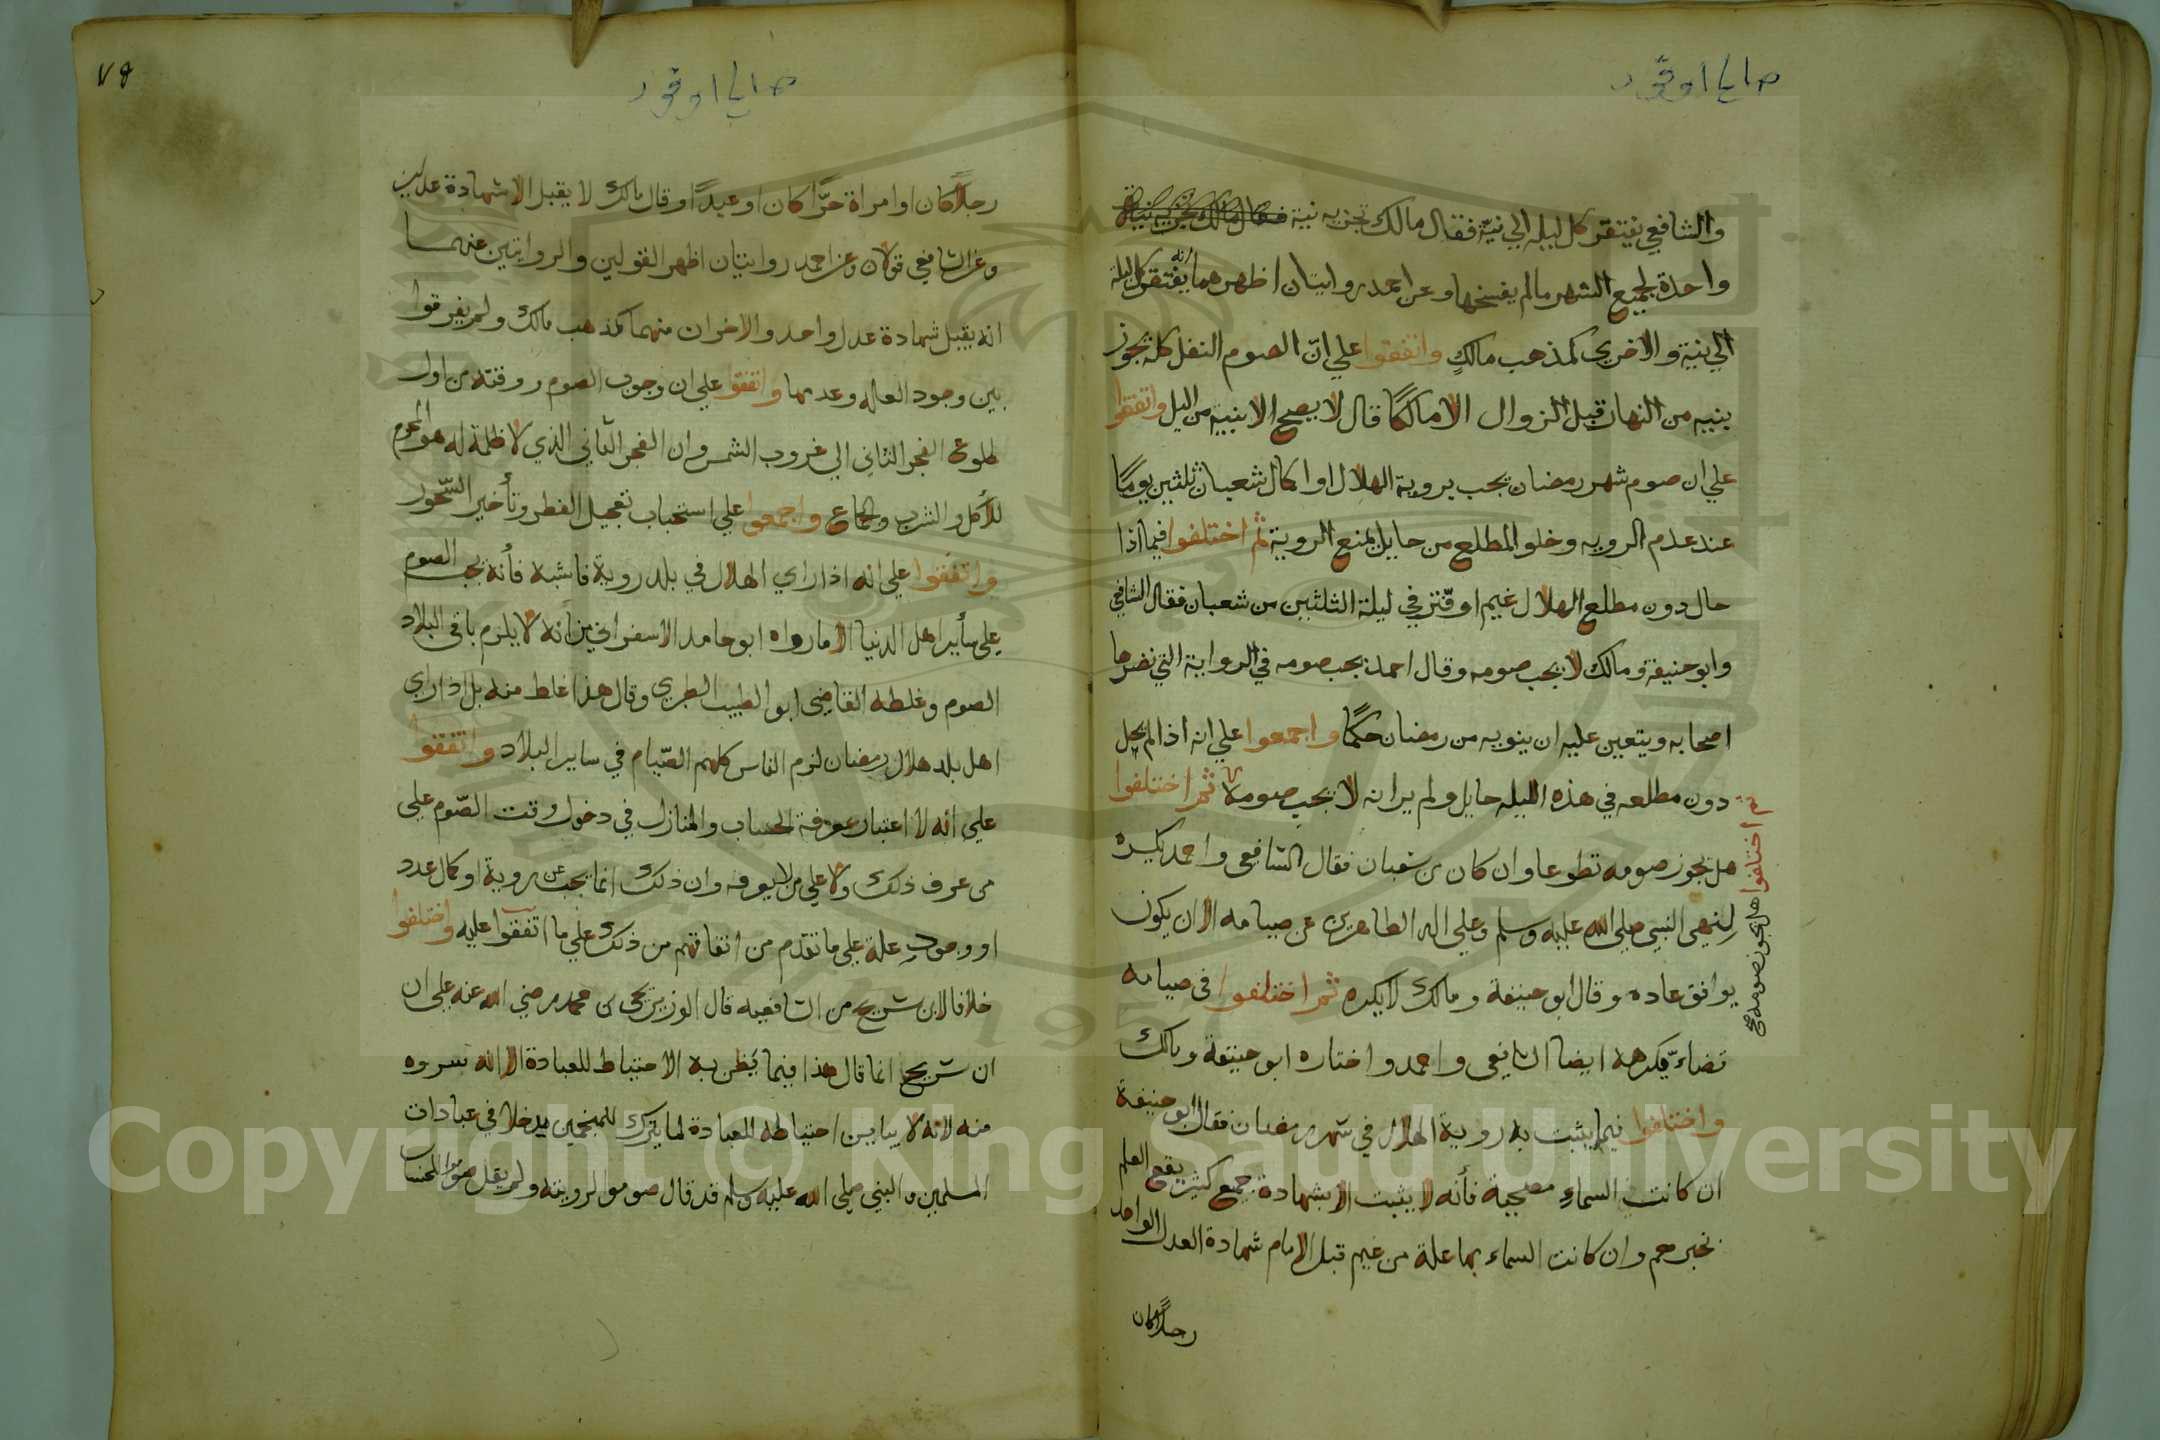 والشافعي يفتقر كل ليله الي نية فقال مالك تجزيه نية
واحدة لجميع الشهر ما لم يفسخها وعن احمد روايتان اظهرهما انه يفتقر كل ليلة
الي نية والاخري كمذهب مالك واتفقوا علي ان الصوم النفل كله يجوز
بنيه من النهار قبل الزوال الا مالكا قال لا يصح الا بنيه من اليل واتفقوا
علي ان صوم شهر رمضان يجب بروية الهلال او اكمال شعبان ثلثين يومًا
عند عدم الرويه وخلو المطلع من حايل يمنع الروية ثم اختلفوا فيما اذا
حال دون مطلع الهلال غيم او قتر في ليلة الثلثين من شعبان فقال الشافعي
وابو حنيفة ومالك لا يجب صومه وقال احمد يجب صومه في الرواية التي نصرها
اصحابه ويتعين عليه ان ينويه من رمضان حكمًا واجمعوا علي انه اذا لم يحل
دون مطلعه في هذه الليله حايل ولم ير انه لا يجب صومه ثم اختلفوا
هل يجوز صومه تطوعا وان كان من شعبان فقال الشافعي واحمد يكره
لنهي النبي صلي الله عليه وسلم وعلي اله الطاهرين عن صيامه الا ان يكون
يوافق عاده وقال ابو حنيفة ومالك لا يكره ثم اختلفوا في صيامه
قضاء فكرهه ايضا الشافعي واحمد واختاره ابو حنيفة ومالك
واختلفوا فيما يثبت به روية الهلال في شهر رمضان فقال ابو حنيفة
ان كانت السماء مصحية فأنه لا يثبت الا بشهادة جمع كثير يقع العلم
بخبرهم وان كانت السماء بها علة من غيم قبل الامام شهادة العدل الواحد
رجلا كان
ثم اختلفوا هل يجوز صومه صح
٧٥
رجلًا كان او امراة حرًّا كان او عبدًا وقال مالك لا يقبل الا شهادة عدلين
وعن الشافعي قولان وعن احمد روايتان اظهر القولين والروايتين عنهما
انه يقبل شهادة عدل واحد والاخران منهما كمذهب مالك ولم يفرقوا
بين وجود العله وعدمها واتفقوا علي ان وجوب الصوم ووقته من اول
طلوع الفجر الثاني الي غروب الشمس وان الفجر الثاني الذي لا ظلمة له هو المحرم
للأكل والشرب والجماع واجمعوا علي استحباب تعجيل الفطر وتأخير السّحور
واتفقوا علي انه اذا راي الهلال في بلد روية فاشية فأنه يجب الصوم
علي سأير اهل الدنيا الا ما رواه ابو حامد الاسفرايني من أنه لا يلزم باقي البلاد
الصوم وغلطه القاضي ابو الطيب الطبري وقال هذا غلط منه بل اذا راي
اهل بلد هلال رمضان لزم الناس كلهم الصّيام في ساير البلاد واتفقوا
علي انه لا اعتبار بمعرفة الحساب والمنازل في دخول وقت الصّوم علي
من عرف ذلك ولا علي من لا يعرفه وان ذلك انما يجب عن روية او كمال عدد
او وجود علة علي ما تقدم من اتفاقهم من ذلك علي ما اتفقوا عليه واختلفوا
خلافا لابن شريح من الشافعيه قال الوزير يحيي بن محمد رضي الله عنه علي ان
ابن شريح انما قال هذا فيما يظن به الاحتياط للعبادة الا انه
منه لانه لا احتياطه للعبادة لما يترك للمنجمين مدخلا في عبادات
المسلمين والنبي صلي الله عليه وسلم قد قال صوموا لرويته ولم يقل صوموا للحساب